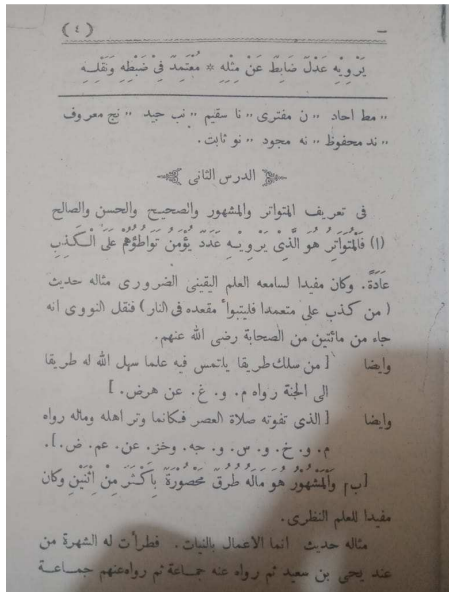 ( ٤ ) –
يَرْوِيْهِ عَدْلٌ ضَابِطٌ عَنْ مِثْلِهِ * مُعْتَمَدٌ فِيْ ضَبْطِهِ وَنَقْلِهِ
،، مط احاد ،، ن مفترى ،، نا سقيم ،، نب جيد ،، نج معروف
،، ند محفوظ ،، نه مجود ،، نو ثابت.
الدرس الثانى
فى تعريف المتواتر والمشهور والصحيح والحسن والصالح
(١) فَالْمُتَوَاتِرُ هُوَ الَّذِىْ يَرْوِيْهِ عَدَدٌ يُؤْمَنُ تَوَاطُؤُهُمْ عَلَى الْكَذِبِ
عَادَةً. وكان مفيدا لسامعه العلم اليقينى الضرورى مثاله حديث
( من كذب على متعمدا فليتبوأ مقعده فى النار ) فنقل النووى انه
جاء من مائتين من الصحابة رضى الله عنهم.
وايضا [ من سلك طريقا يلتمس فيه علما سهل الله له طريقا
الى الجنة رواه م. و. غ. عن هرض. ]
وايضا [ الذى تفوته صلاة العصر فكانما وتر اهله وماله رواه
م. و. خ. و. س. و. جه. وخز. عن. عم. ض. ].
[ب] وَالْمَشْهُوْرُ هُوَ مَالَهُ طُرُقٌ مَحْصُوْرَةٌ بِاَكْثَرَ مِنْ اِثْنَيْنِ وكان
مفيدا للعلم النظرى.
مثاله حديث انما الأعمال بالنيات. فطرأت له الشهرة من
عند يحى بن سعيد ثم رواه عنه جماعة ثم رواه عنهم جماعة